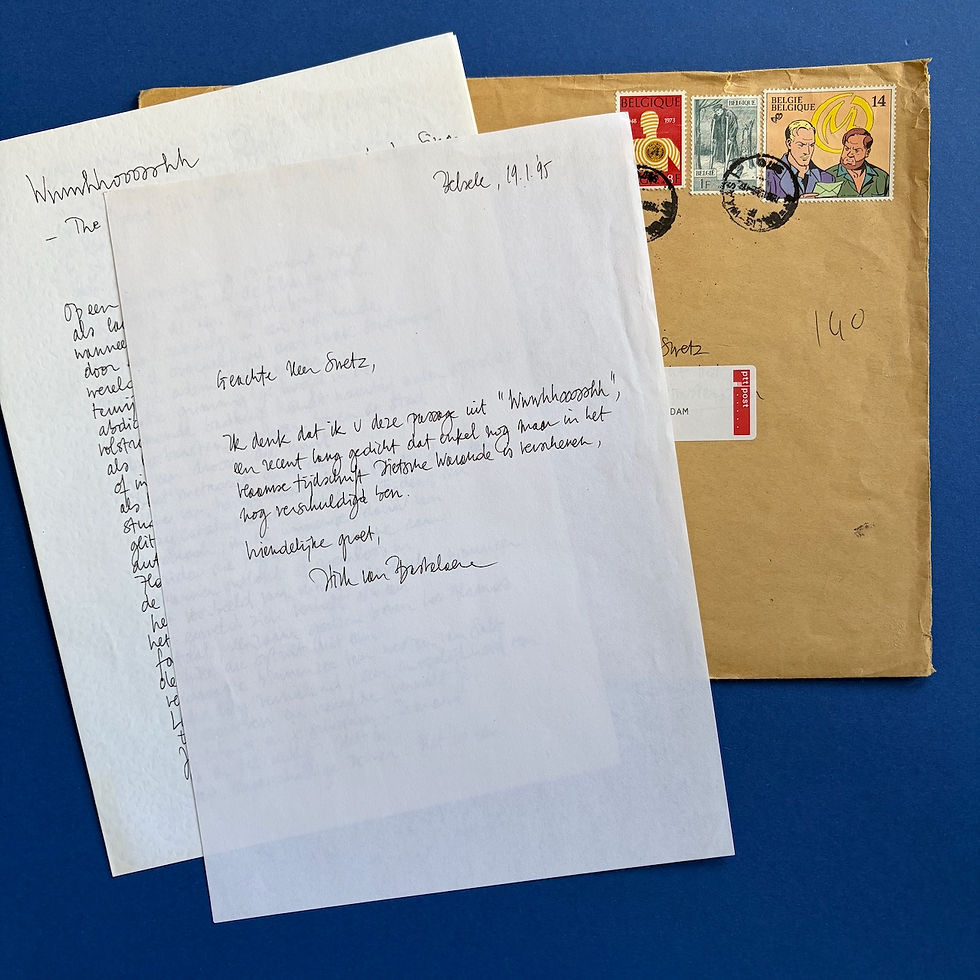 Wwwhhoooshh
– The
Op een
als
wannee
door
wereld
terwij
abdic
volstre
als
of in
als
stru
glit
aut
de
he
het
fa
de
Belsele, 19.1.'95
Geachte Heer Swetz,
Ik denk dat ik u deze passage uit "Wwwhhoooshh",
een recent lang gedicht dat enkel nog maar in het
Vlaamse tijdschrift Dietsche Warande is verschenen,
nog verschuldigd ben.
Vriendelijke groet,
Dirk van Bastelaere
BELGIQUE
1973
BELGIQUE
BELGIË
1F
BELGIE
BELGIQUE
14
Swetz
140
ptt post
DAM